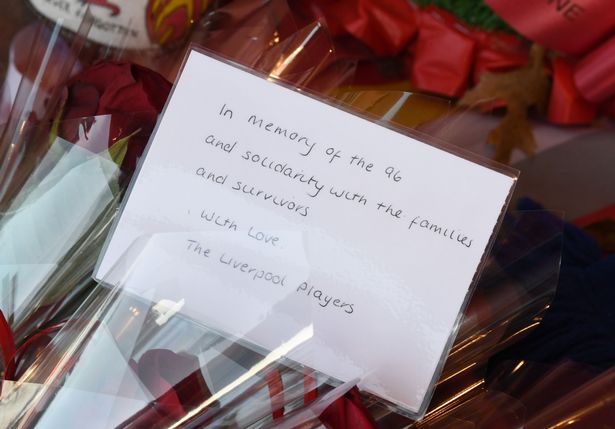 In memory of the 96
and solidarity with the families
and survivors
With Love.
The Liverpool players
NE